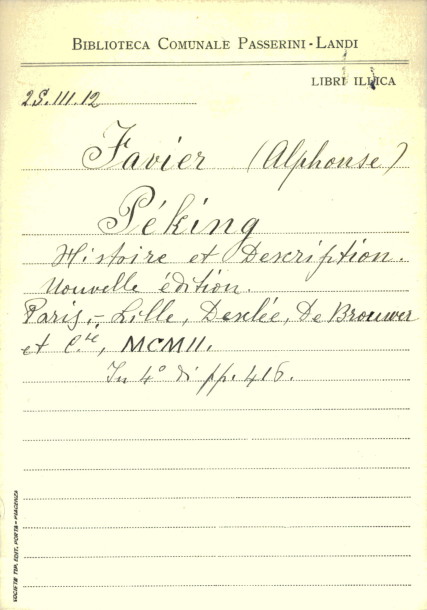 BIBLIOTECA COMUNALE PASSERINI-LANDI
LIBRI ILLICA
2S.III.12
Favier (Alphonse)
Péking
Histoire et Description.
Nouvelle édition.
Paris,-Lille, Desclée, De Brouwer
et C.ie, MCMII.
In 4° di pp. 416.
SOCIETÀ TIP. EDIT. PORTA - PIACENZA